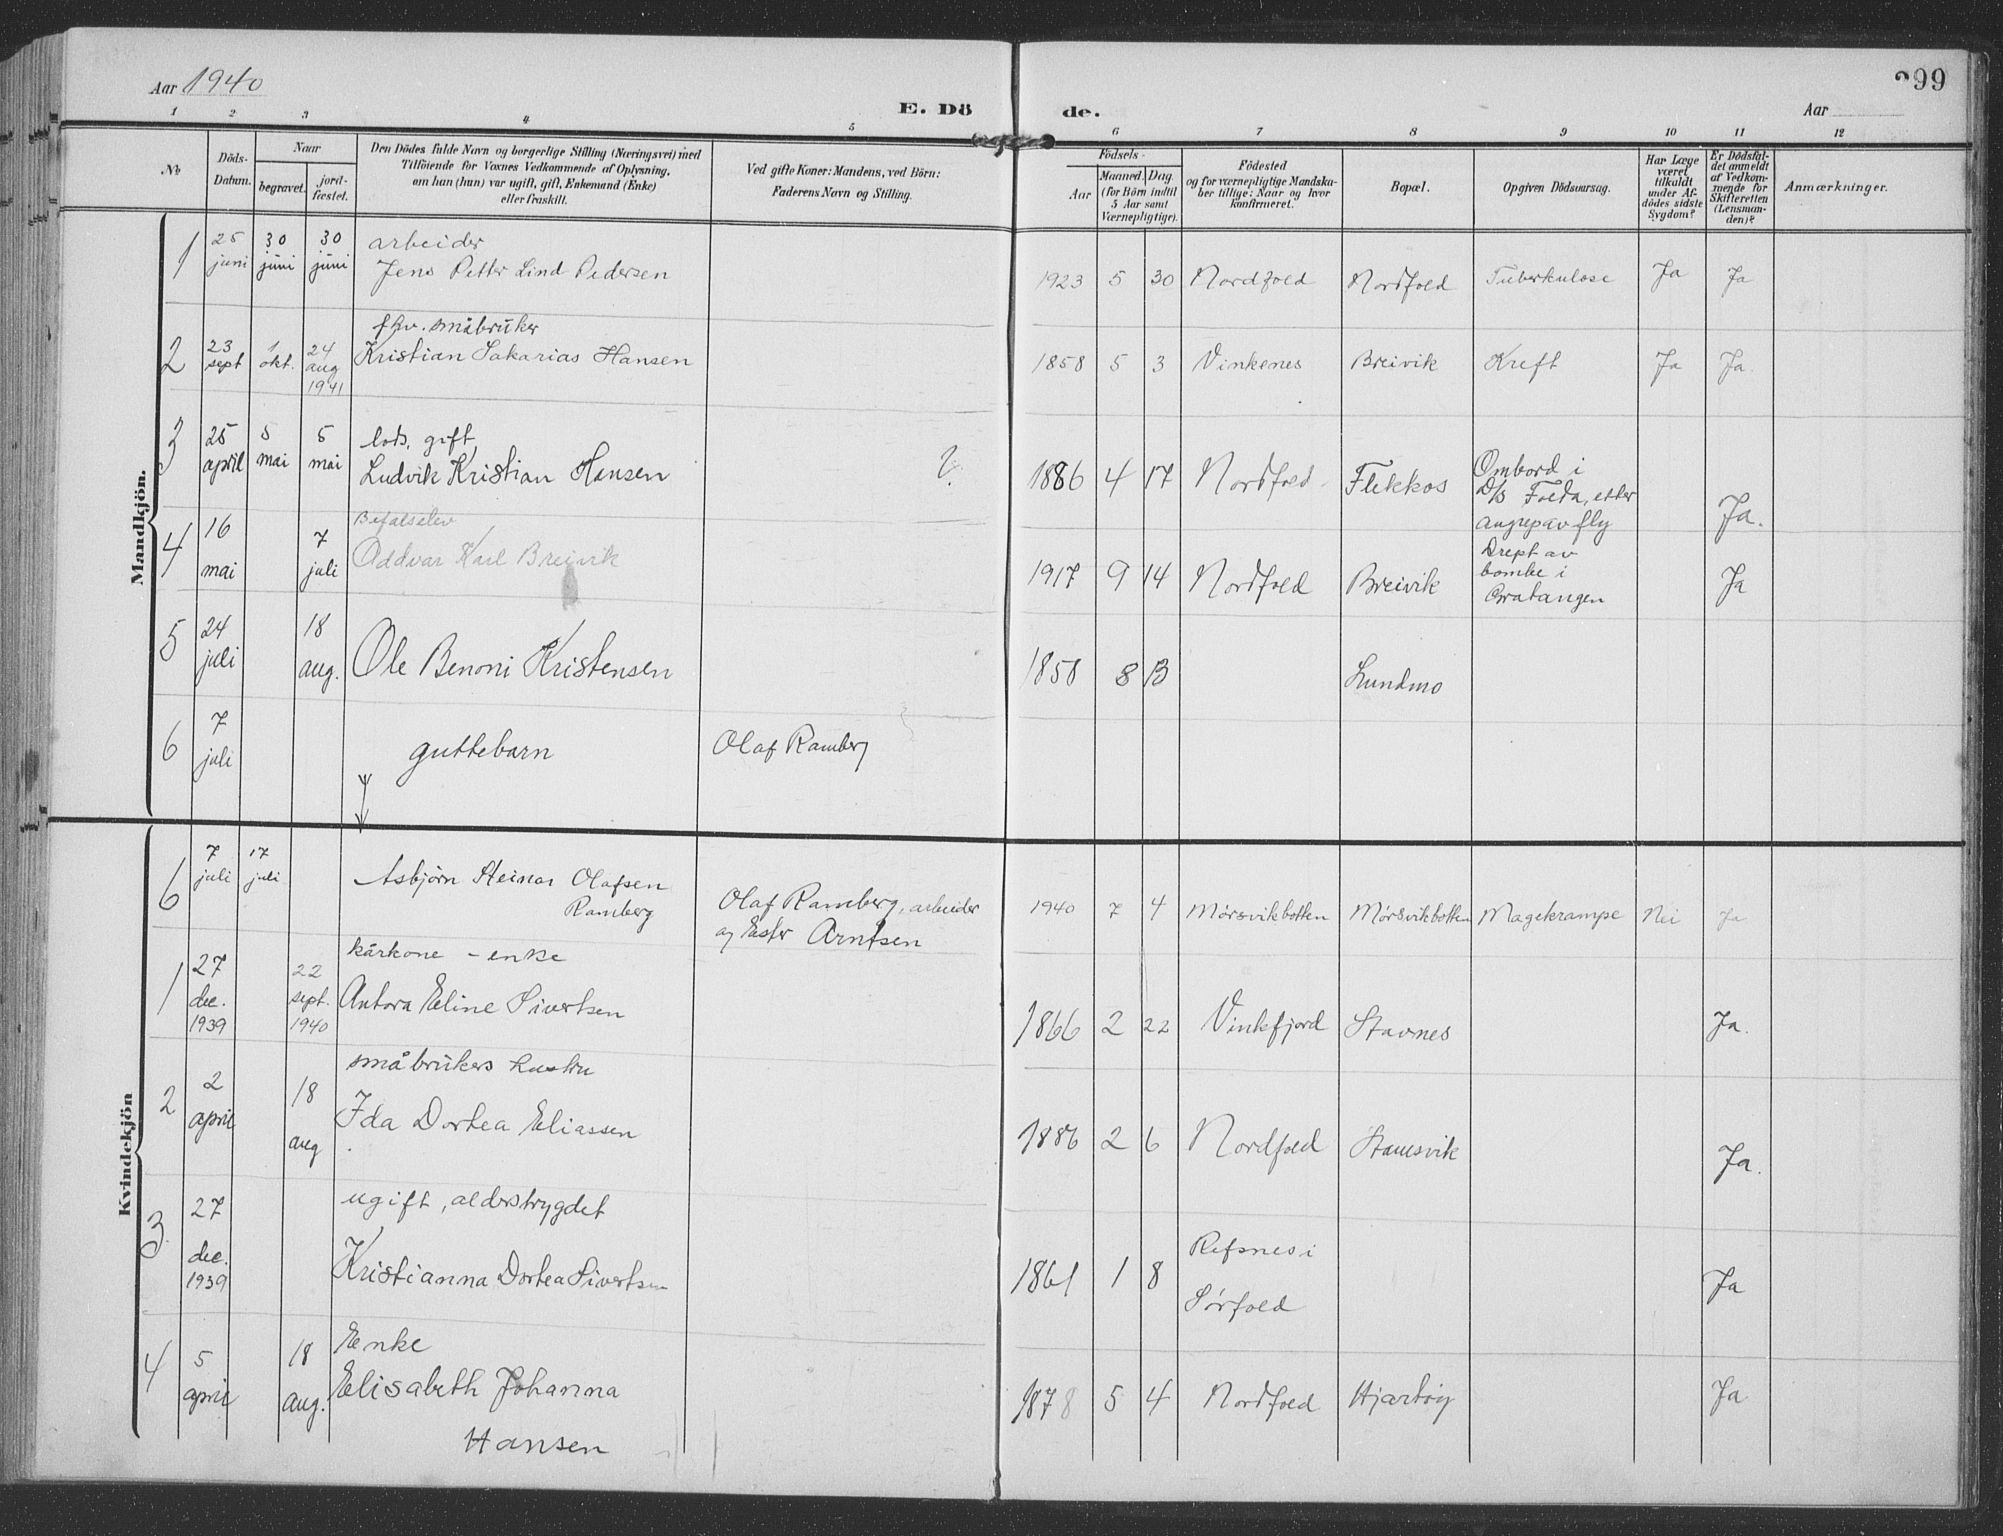 Aar 1940
E. Dö
de.
Aar
99
1 2 3 4 5 6 7 8 9 10 11 12
No
Döds-
Datum.
Naar
begravet.
jord-
fæstet.
Den Dödes fulde Navn og borgerlige Stilling (Næringsvei) med
Tilföiende for Voxnes Vedkommende af Oplysning,
om han (hun) var ugift, gift, Enkemand (Enke)
eller fraskilt.
Ved gifte Koner: Mandens, ved Börn:
Faderens Navn og Stilling.
Födsels-
Aar
Maaned. Dag.
(for Börn indtil
5 Aar samt
Værnepligtige).
Födested
og for værnepligtige Mandska-
ber tillige: Naar og hvor
konfirmeret.
Bopæl.
Opgiven Dödsaarsag.
Har Læge
været
tilkaldt
under Af-
dödes sidste
Sygdom?
Er Dödsfal-
det anmeldt
af Vedkom-
mende for
Skifteretten
(Lensman-
den)?
Anmærkninger.
Mandkjön.
1 25 juni 30 juni 30 juni arbeider
Jens Petter Lind Pedersen 1923 5 30 Nordfold Nordfold Tuberkulose Ja Ja
2 23 sept 1 okt. 24 aug 1941 fhv. småbruker
Kristian Sakarias Hansen 1858 5 3 Vinkenes Breivik Kreft Ja Ja.
3 25 april 5 mai 5 mai lods, gift
Ludvik Kristian Hansen ? 1886 4 17 Nordfold Flekkos Ombord i
D/S Folda, etter
angrep av fly Ja.
4 16 mai 7 juli Befalselev
Oddvar Karl Breivik 1917 9 14 Nordfold Breivik Drept av
bombe i
Gratangen Ja
5 24 juli 18 aug. Ole Benoni Kristensen 1858 8 13 Lundmo
6 7 juli guttebarn Olaf Ramberg
Kvindekjön
6 7 juli 17 juli Asbjørn Steinar Olafsen
Ramberg Olaf Ramberg, arbeider
og Ester Arntsen 1940 7 4 Mørsvikbotten Mørsvikbotten Magekrampe Nei Ja
1 27 dec. 1939 22 sept. 1940 kårkone - enke
Antora Eline Sivertsen 1866 2 22 Vinkfjord Stavnes Ja.
2 2 april 18 aug småbrukers hustru
Ida Dortea Eliassen 1886 2 6 Nordfold Stamsvik Ja.
3 27 dec. 1939 ugift, alderstrygdet
Kristianna Dortea Sivertsen 1861 1 8 Refsnes i
Sørfold Ja
4 5 april 18 aug. Enke
Elisabeth Johanna
Hansen 1878 5 4 Nordfold Hjartøy Ja